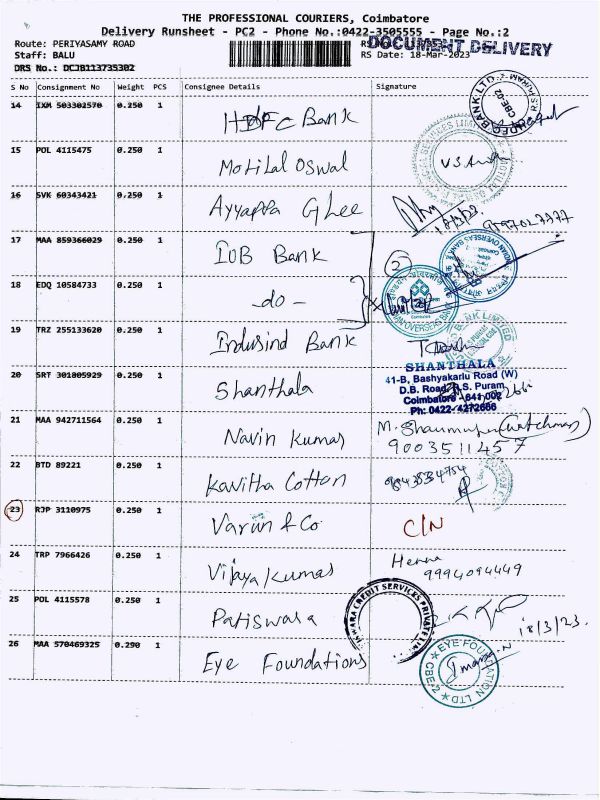 THE PROFESSIONAL COURIERS, Coimbatore
Delivery Runsheet - PC2 - Phone No.:0422-3505555 - Page No.:2
Route: PERIYASAMY ROAD
DOCUMENT DELIVERY
Staff: BALU
RS Date: 18-Mar-2023
DRS No.: DCJB113735302
S No Consignment No Weight PCS Consignee Details Signature
14 IXM 503302570 0.250 1 HDFC Bank
15 POL 4115475 0.250 1 Motilal Oswal
16 SVK 60343421 0.250 1 Ayyappa Ghee 18/3/23
17 MAA 859366029 0.250 1 IOB Bank 2
18 EDQ 10584733 0.250 1 -do-
19 TRZ 255133620 0.250 1 Indusind Bank
20 SRT 301805929 0.250 1 Shanthala
SHANTHALA
41-B, Bashyakarlu Road (W)
D.B. Road, R.S. Puram,
Coimbatore - 641 002
Ph: 0422-4272666
21 MAA 942711564 0.250 1 Navin Kumar (Watchman)
9003511457
22 BTD 89221 0.250 1 Kavitha Cotton
23 RJP 3110975 0.250 1 Varun & Co C/N
24 TRP 7966426 0.250 1 Vijaya Kumar Hema
9994094449
25 POL 4115578 0.250 1 Patiswara 18/3/23.
CREDIT SERVICES PRIVATE
26 MAA 570469325 0.290 1 Eye Foundations
EYE FOUNDATION LTD CBE-2